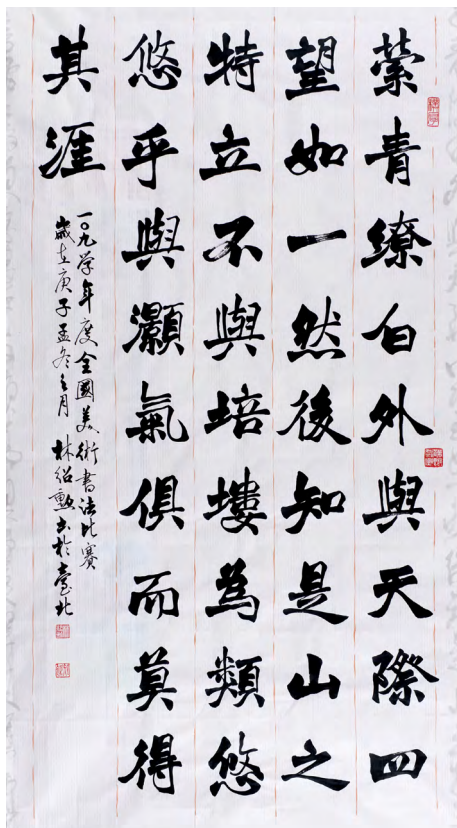 縈青繚白外與天際四
望如一然後知是山之
特立不與培塿為類悠
悠乎與灝氣俱而莫得
其涯
一〇九学年度全國美術書法比賽
歲在庚子孟冬之月 林紹勲書於臺北